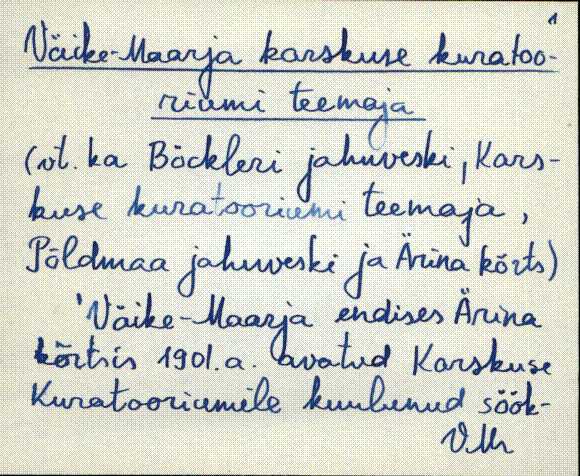 1
Väike-Maarja karskuse kuratoo-
riumi teemaja
(vt. ka Böckleri jahuveski, Kars-
kuse kuratooriumi teemaja,
Põldmaa jahuveski ja Ärina kõrts)
Väike-Maarja endises Ärina
kõrtsis 1901.a. avatud Karskuse
Kuratooriumile kuulunud söök-
VMr